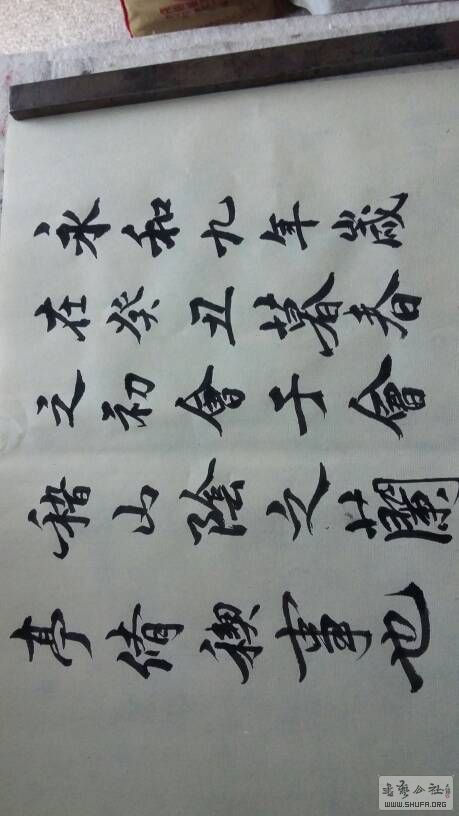 永和九年歲
在癸丑暮春
之初會于會
稽山陰之蘭
亭脩禊事也
書藝公社
WWW.SHUFA.ORG